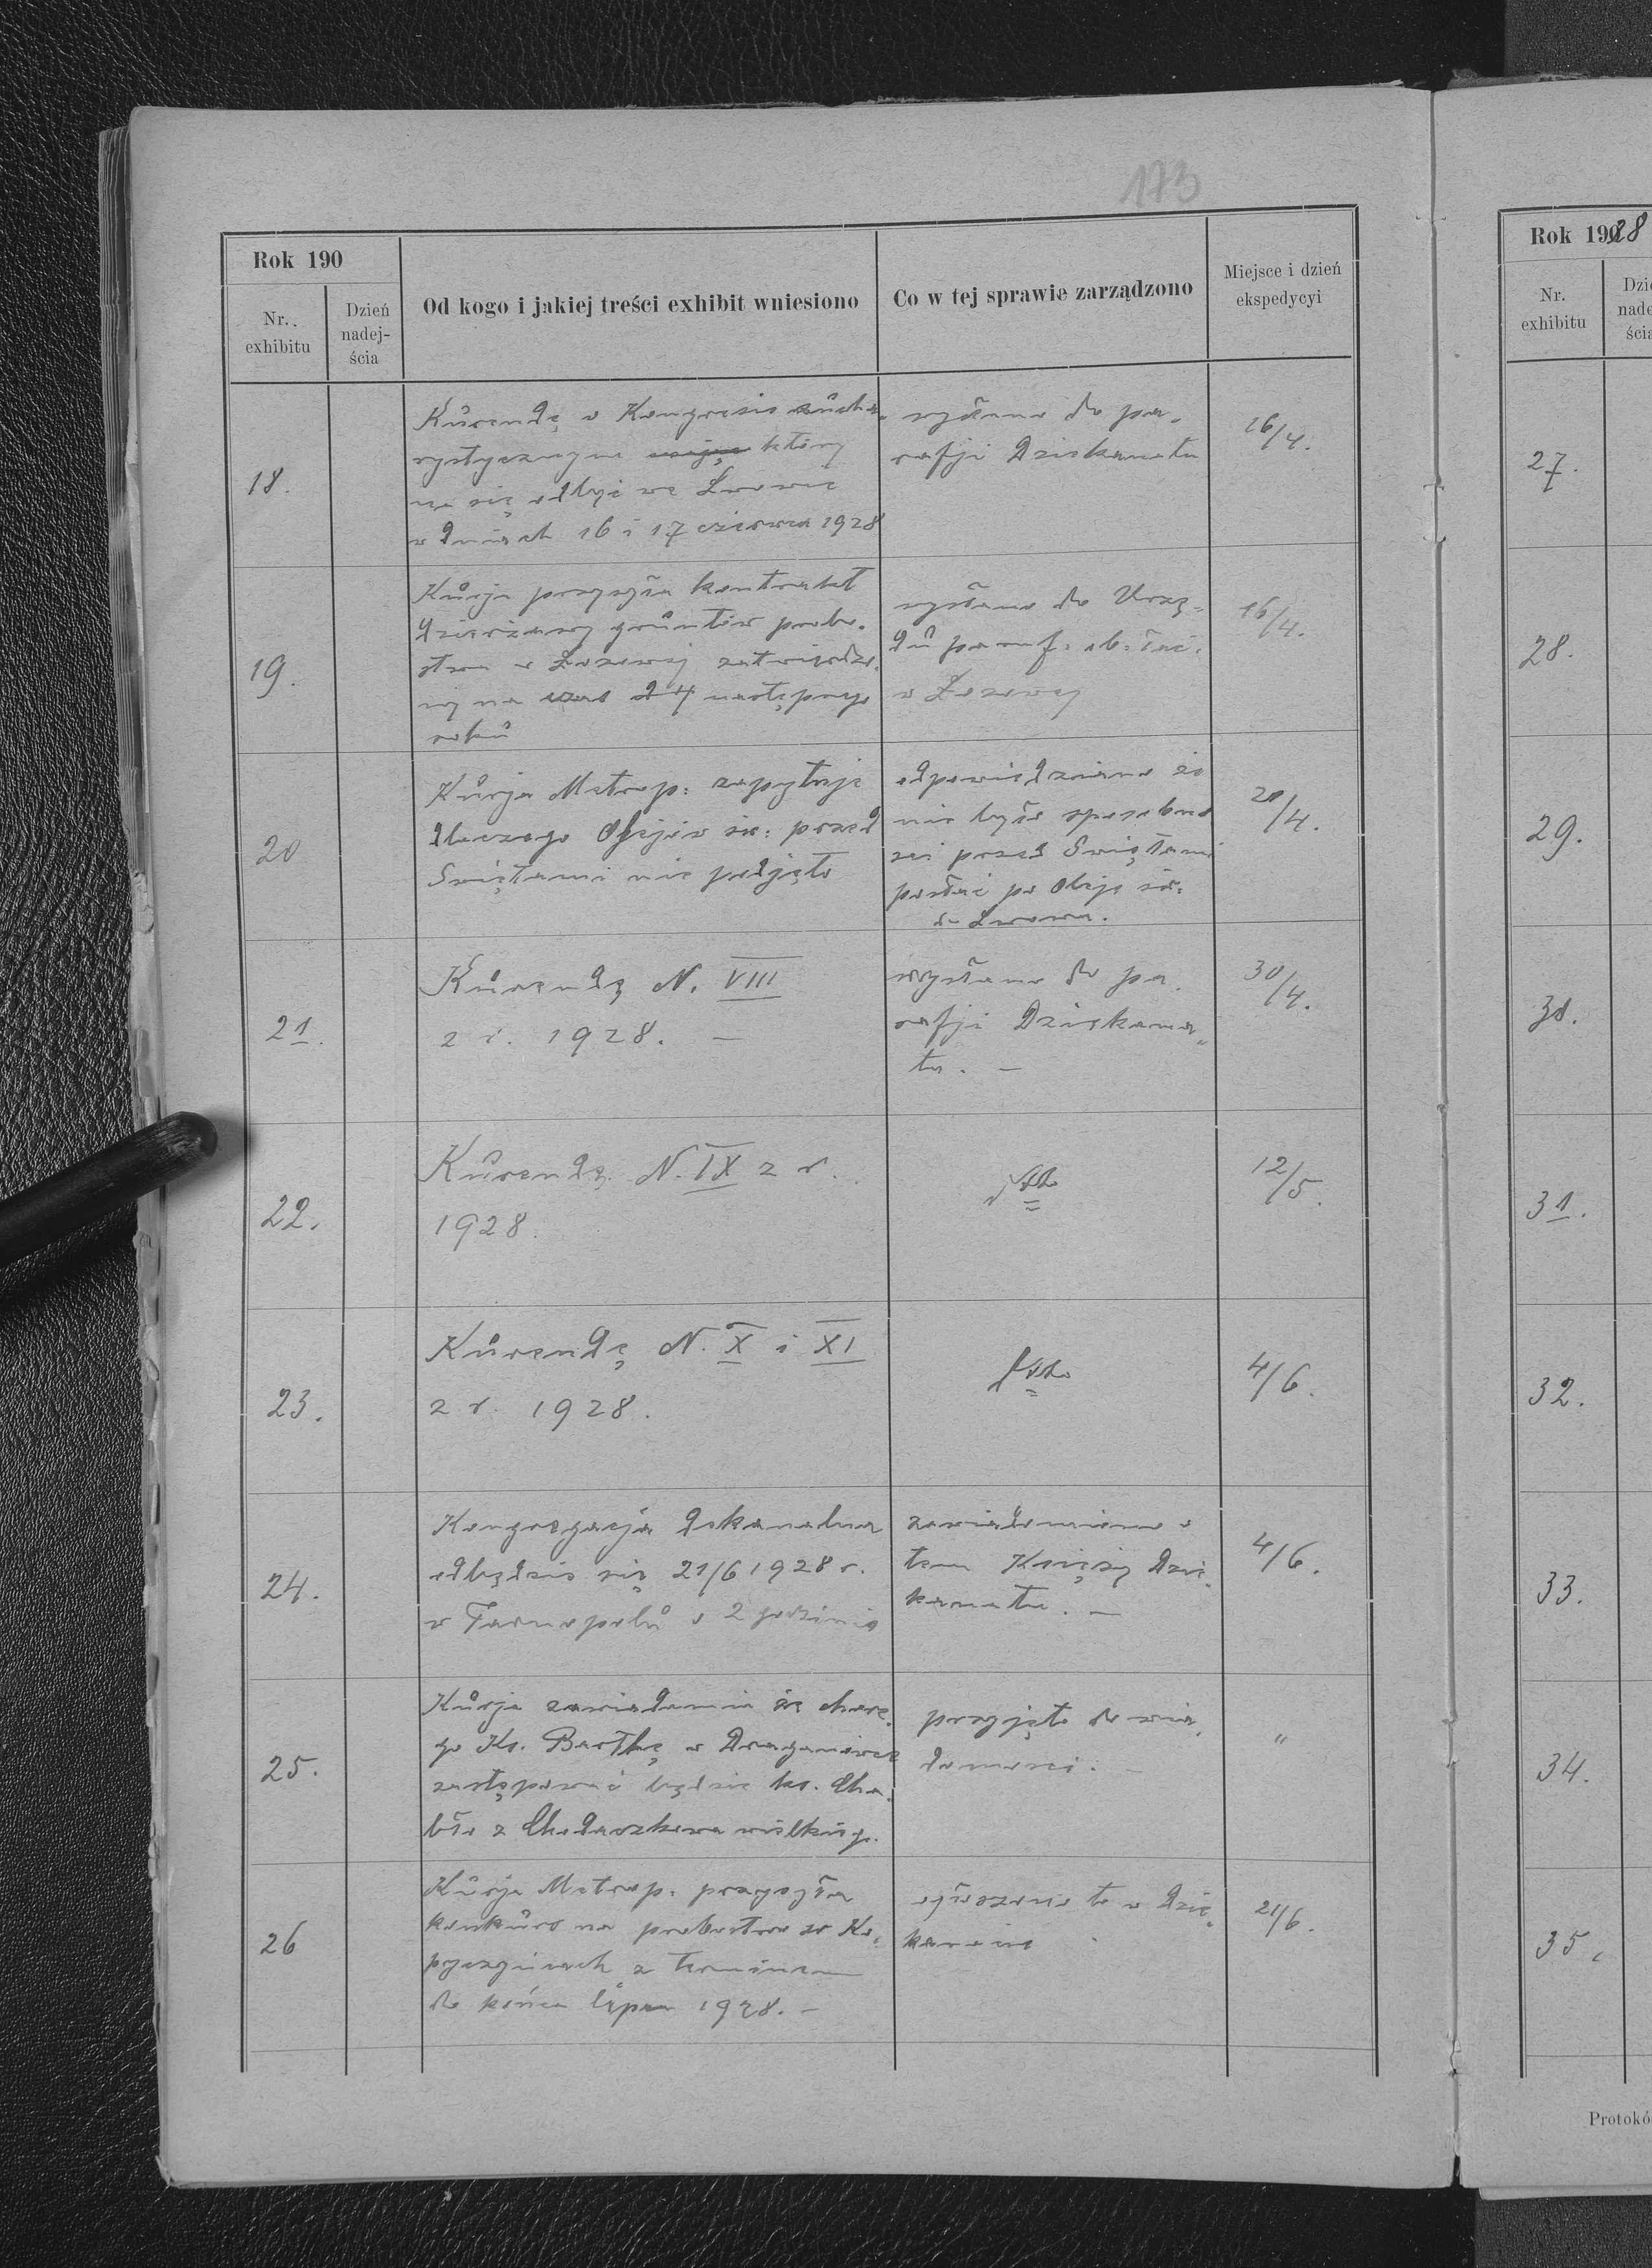 173
Rok 190
Nr. exhibitu
Dzień nadej-ścia
Od kogo i jakiej treści exhibit wniesiono
Co w tej sprawie zarządzono
Miejsce i dzień ekspedycyi
18.
Kurendę o Kongresie eucha-
rystycznym który
ma się odbyć we Lwowie
w dniach 16 i 17 czerwca 1928
wysłano do pa-
rafji Dziekanatu
16/4.
19.
Kurja przysyła kontrakt
dzierżawy gruntów probo-
stwa w Łozowej zatwierdzo-
ny na następnego
roku
wysłano do Urzę-
du paraf. ob. łać.
w Łozowej
16/4.
20
Kurja Metrop: zapytuje
dlaczego Olejów św: przed
Świętami nie podjęto
odpowiedziano że
nie było sposobno
sci przed Swiętami
posłać po Oleje św:
do Lwowa.
20/4.
21.
Kurendę N. VIII
z r. 1928. —
wysłano do pa.
rafji Dziekana„
tu. —
30/4.
22.
Kurendę N. IX z r.
1928.
12/5.
23.
Kurendę N. X i XI
z r. 1928.
4/6.
24.
Kongregacja dekanalna
odbędzie się 21/6 1928 r.
w Tarnopolu o 2 godzinie
zawiadomiono o
tem Księży Dzie-
kanatu. —
4/6.
25.
Kurja zawiadamia że chore-
go Ks. Bartkę w Draganówce
zastępować będzie ks. Cha-
bło z Chodaczkowa wielkiego.
przyjęto do wia-
domosci. —
"
26
Kurja Metrop: przysyła
konkurs na probostwo w Ko-
pyczyńcach z terminem
do końca lipca 1928. —
ogłoszono to w Dzie-
kanacie
21/6.
Rok 1928
Nr. exhibitu
27.
28.
29.
30.
31.
32.
33.
34.
35.